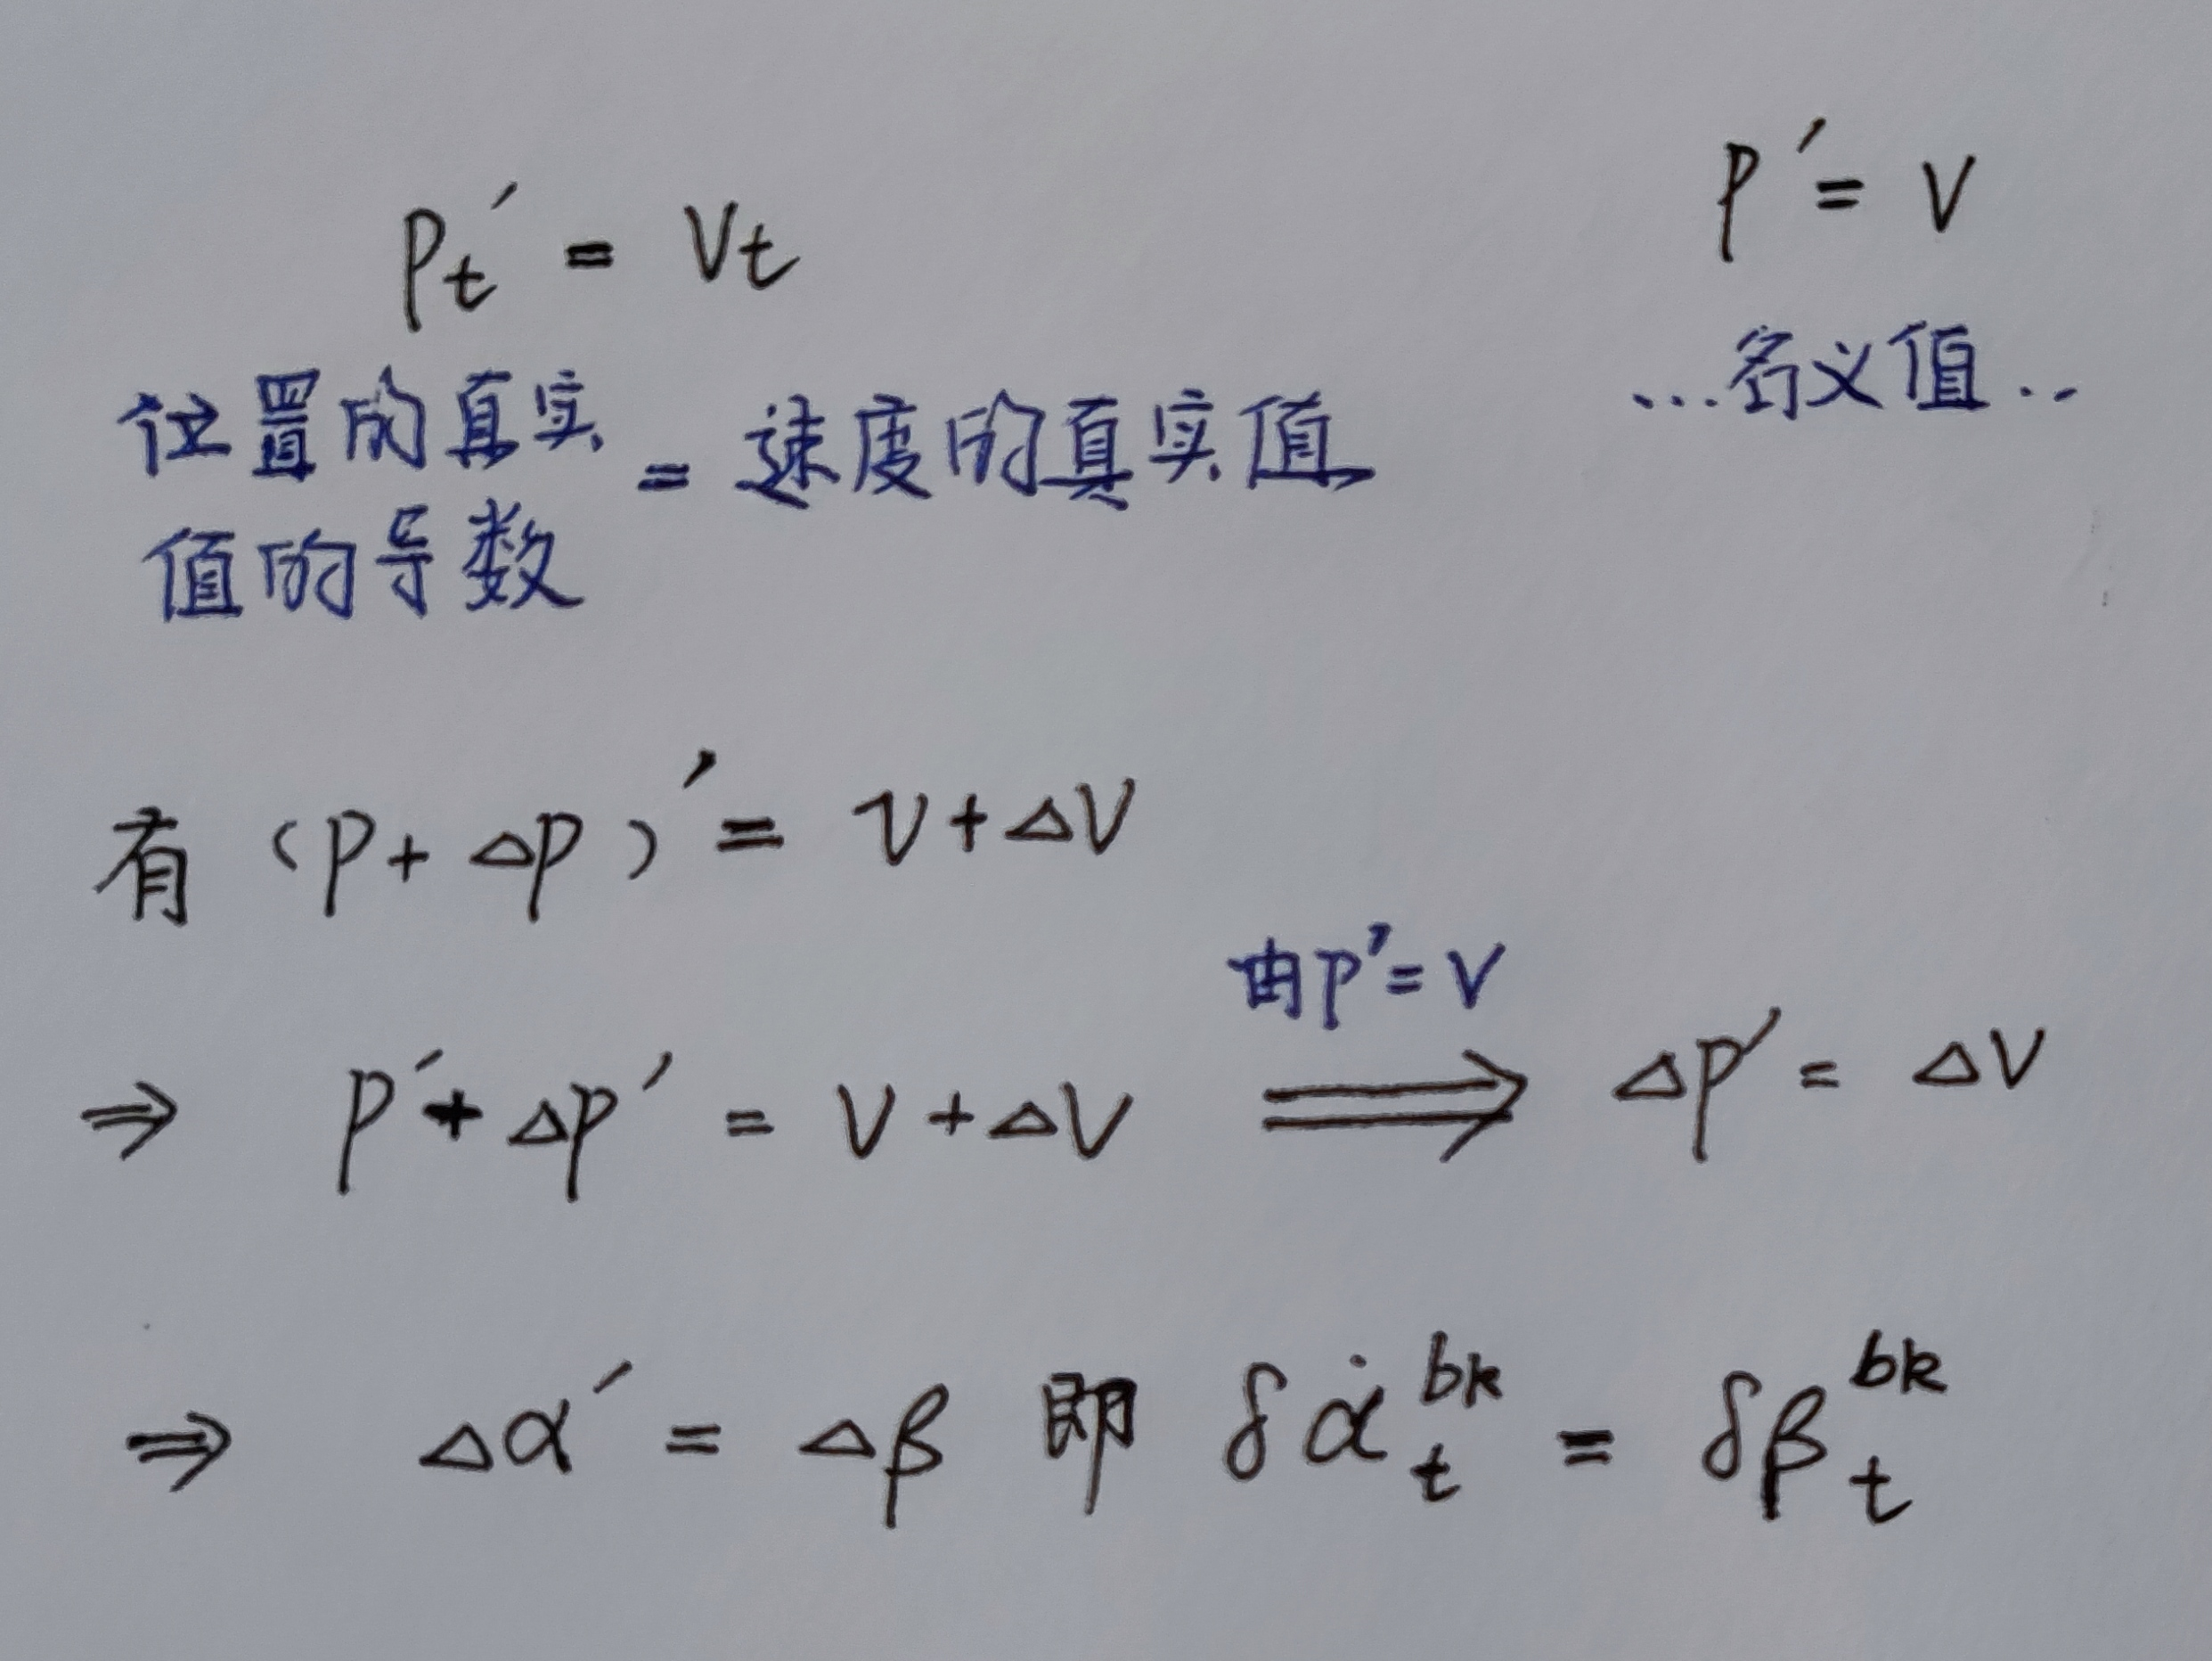 Pt′ = Vt
P′ = V
位置的真实值的导数 = 速度的真实值
...名义值..
有 (P + △P)′ = V + △V
⇒ P′ + △P′ = V + △V ⟹ 由P′=V △P′ = △V
⇒ △α′ = △β 即 δα̇_t^{bk} = δβ_t^{bk}